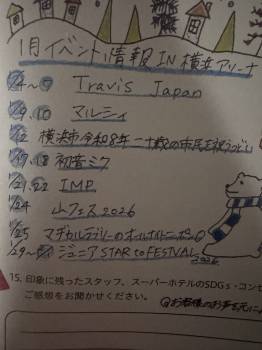 1月イベント情報 IN 横浜アリーナ
1/4〜 Travis Japan
1/9.10 マルシィ
1/12 横浜市令和8年二十歳の市民を祝うつどい
1/17.18 初音ミク
1/21.22 IMP.
1/24 山フェス2026
1/25 マヂカルラブリーのオールナイトニッポン
1/29〜 ジュニア STAR to FESTIVAL 2026
15. 印象に残ったスタッフ、スーパーホテルのSDGs・コンセ
ご感想をお聞かせください。
お客様のお声を元に